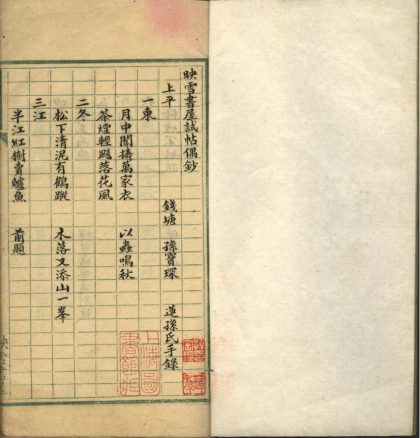 映雪書屋試帖偶鈔
上平 錢塘 孫寶琛 蓮孫氏手錄
一東
月中聞擣萬家衣 以蟲鳴秋
茶煙輕颺落花風
二冬
松下清泥有鶴蹤 木落又添山一峯
三江
半江紅樹賣鱸魚 前題
上海圖書館藏